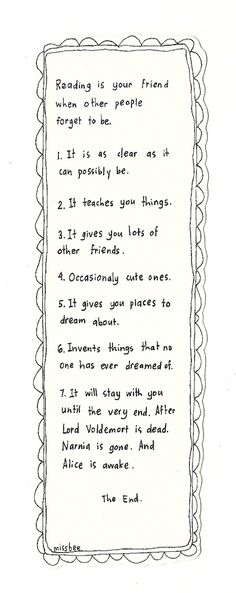 Reading is your friend
when other people
forget to be.
1. It is as clear as it
can possibly be.
2. It teaches you things.
3. It gives you lots of
other friends.
4. Occasionaly cute ones.
5. It gives you places to
dream about.
6. Invents things that no
one has ever dreamed of.
7. It will stay with you
until the very end. After
Lord Voldemort is dead.
Narnia is gone. And
Alice is awake.
The End.
missbee